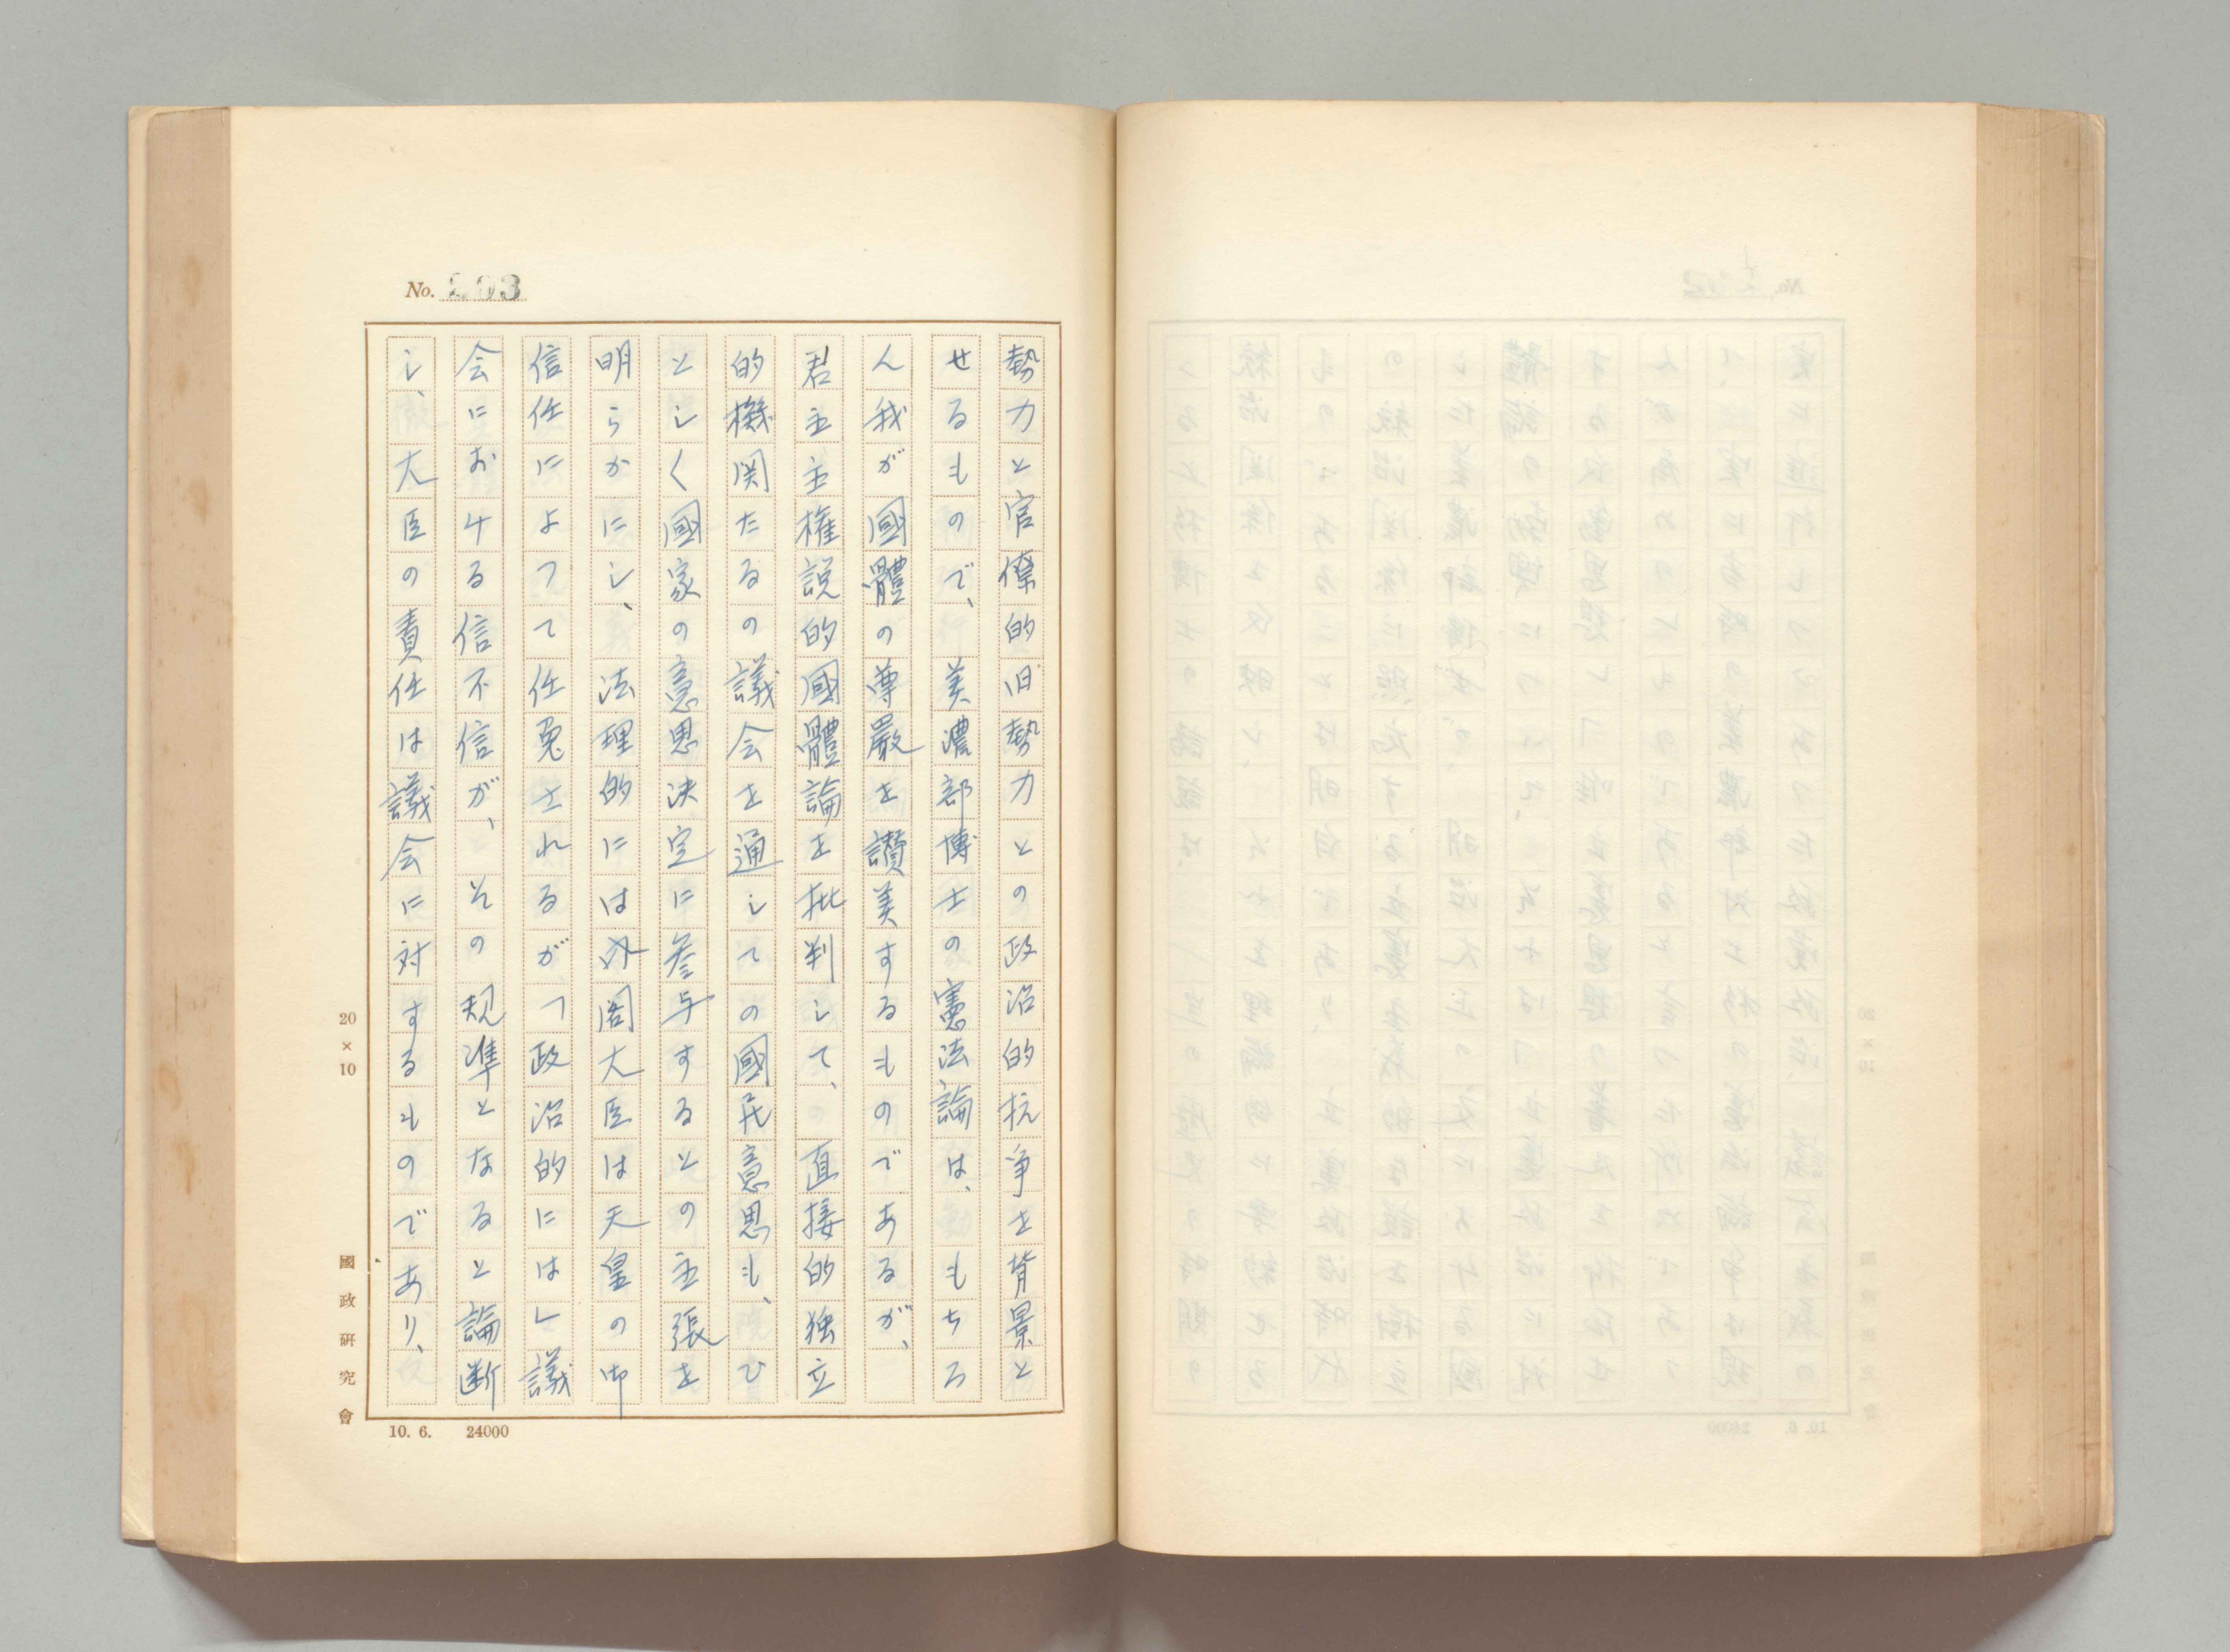 No. 203
勢力と官僚的旧勢力との政治的抗争を背景と
せるもので、美濃部博士の憲法論は、もちろ
ん我が國體の尊厳を讃美するものであるが、
君主主権説的國體論を批判して、直接的独立
的機関たるの議会を通しての國民意思も、ひ
としく國家の意思決定に参与するとの主張を
明らかにし、法理的には内閣大臣は天皇の御
信任によつて任免されるが、「政治的には」議
会における信不信が、その規準となると論断
し、大臣の責任は議会に対するものであり、
20×10
國政研究會
10. 6. 24000